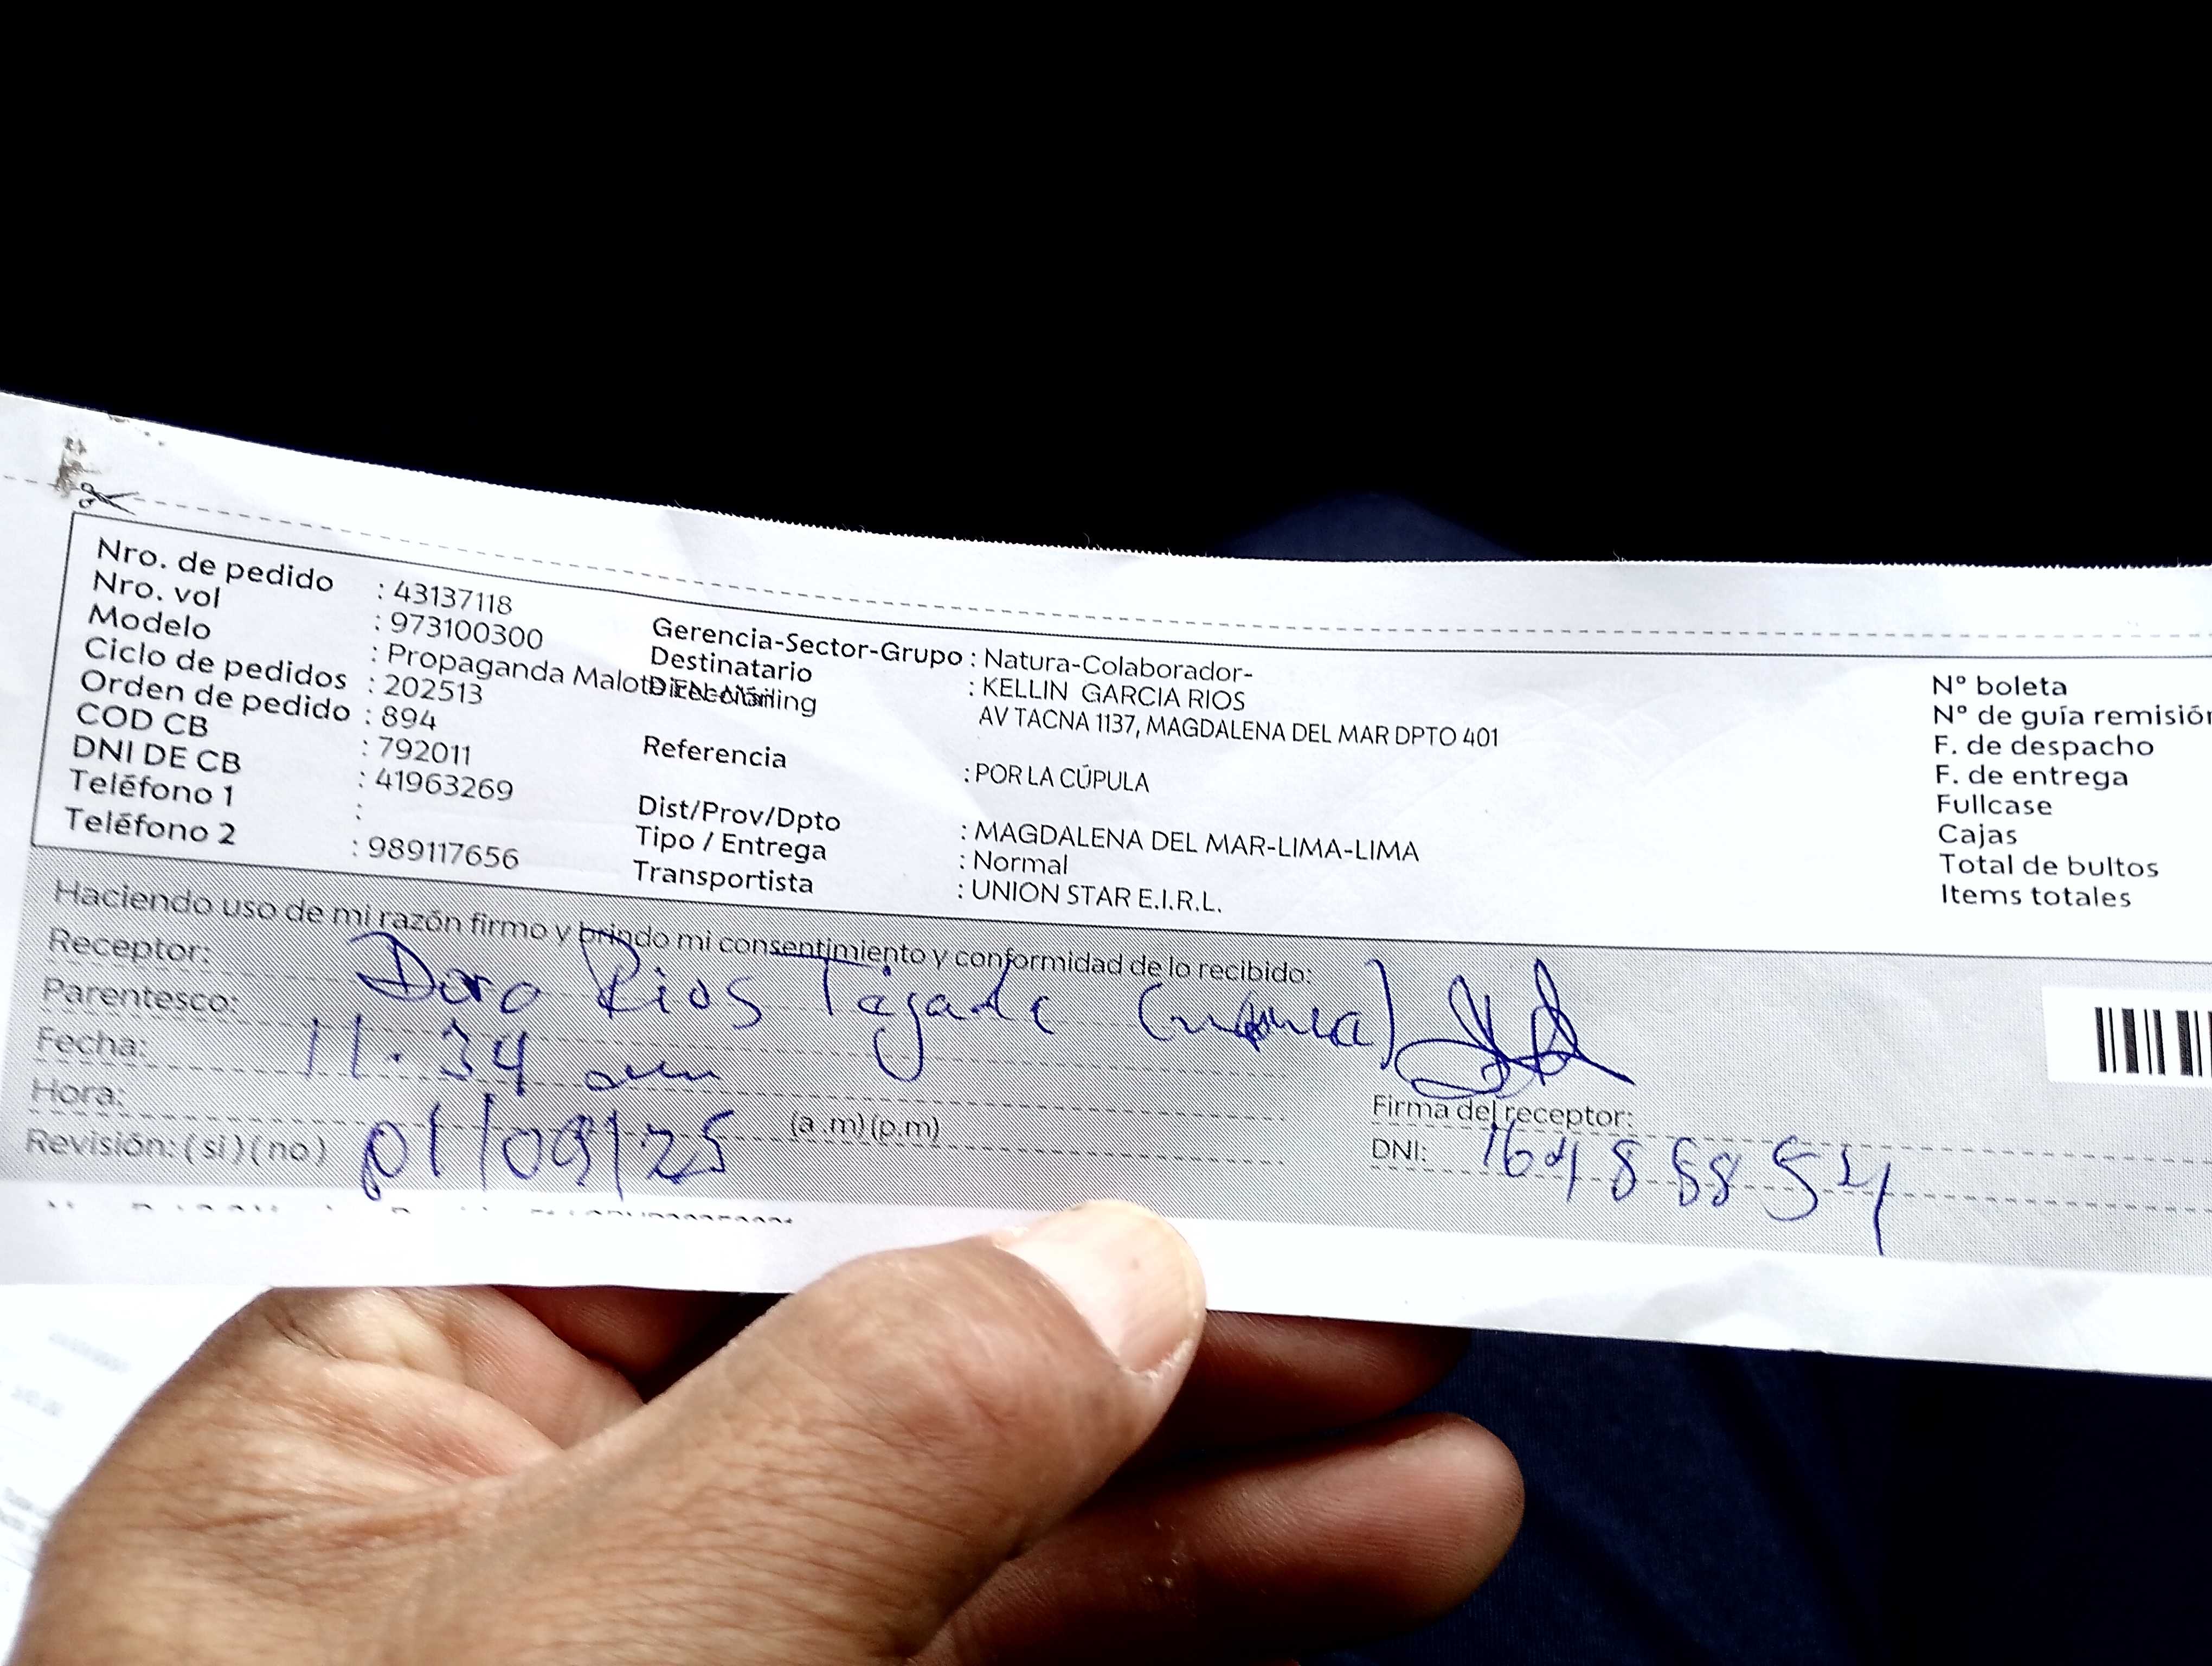 Nro. de pedido : 43137118
Nro. vol : 973100300
Modelo : Propaganda Malote EN-Mailing
Ciclo de pedidos : 202513
Orden de pedido : 894
COD CB : 792011
DNI DE CB : 41963269
Teléfono 1 :
Teléfono 2 : 989117656
Gerencia-Sector-Grupo : Natura-Colaborador-
Destinatario : KELLIN GARCIA RIOS
Dirección AV TACNA 1137, MAGDALENA DEL MAR DPTO 401
Referencia : POR LA CÚPULA
Dist/Prov/Dpto : MAGDALENA DEL MAR-LIMA-LIMA
Tipo / Entrega : Normal
Transportista : UNION STAR E.I.R.L.
N° boleta
N° de guía remisión
F. de despacho
F. de entrega
Fullcase
Cajas
Total de bultos
Items totales
Haciendo uso de mi razón firmo y brindo mi consentimiento y conformidad de lo recibido:
Receptor: Doro Rios
Parentesco:
Fecha: 11:34 am
Hora: (a.m)(p.m)
Revisión: (si)(no) 01/09/25
Firma del receptor:
DNI: 16488854